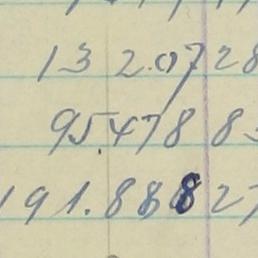 132.0728
95.4788
191.88827